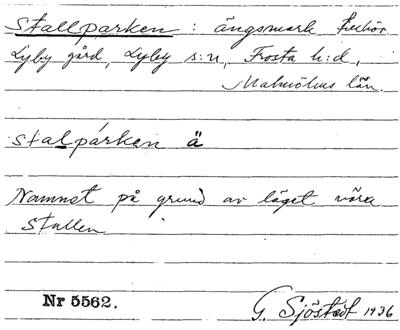 Stallparken : ängsmark tillhör
Lyby gård, Lyby s:n, Frosta h:d,
Malmöhus län.
stalpárken ä
Namnet på grund av läget nära
stallen
Nr 5562.
G. Sjöstedt 1936